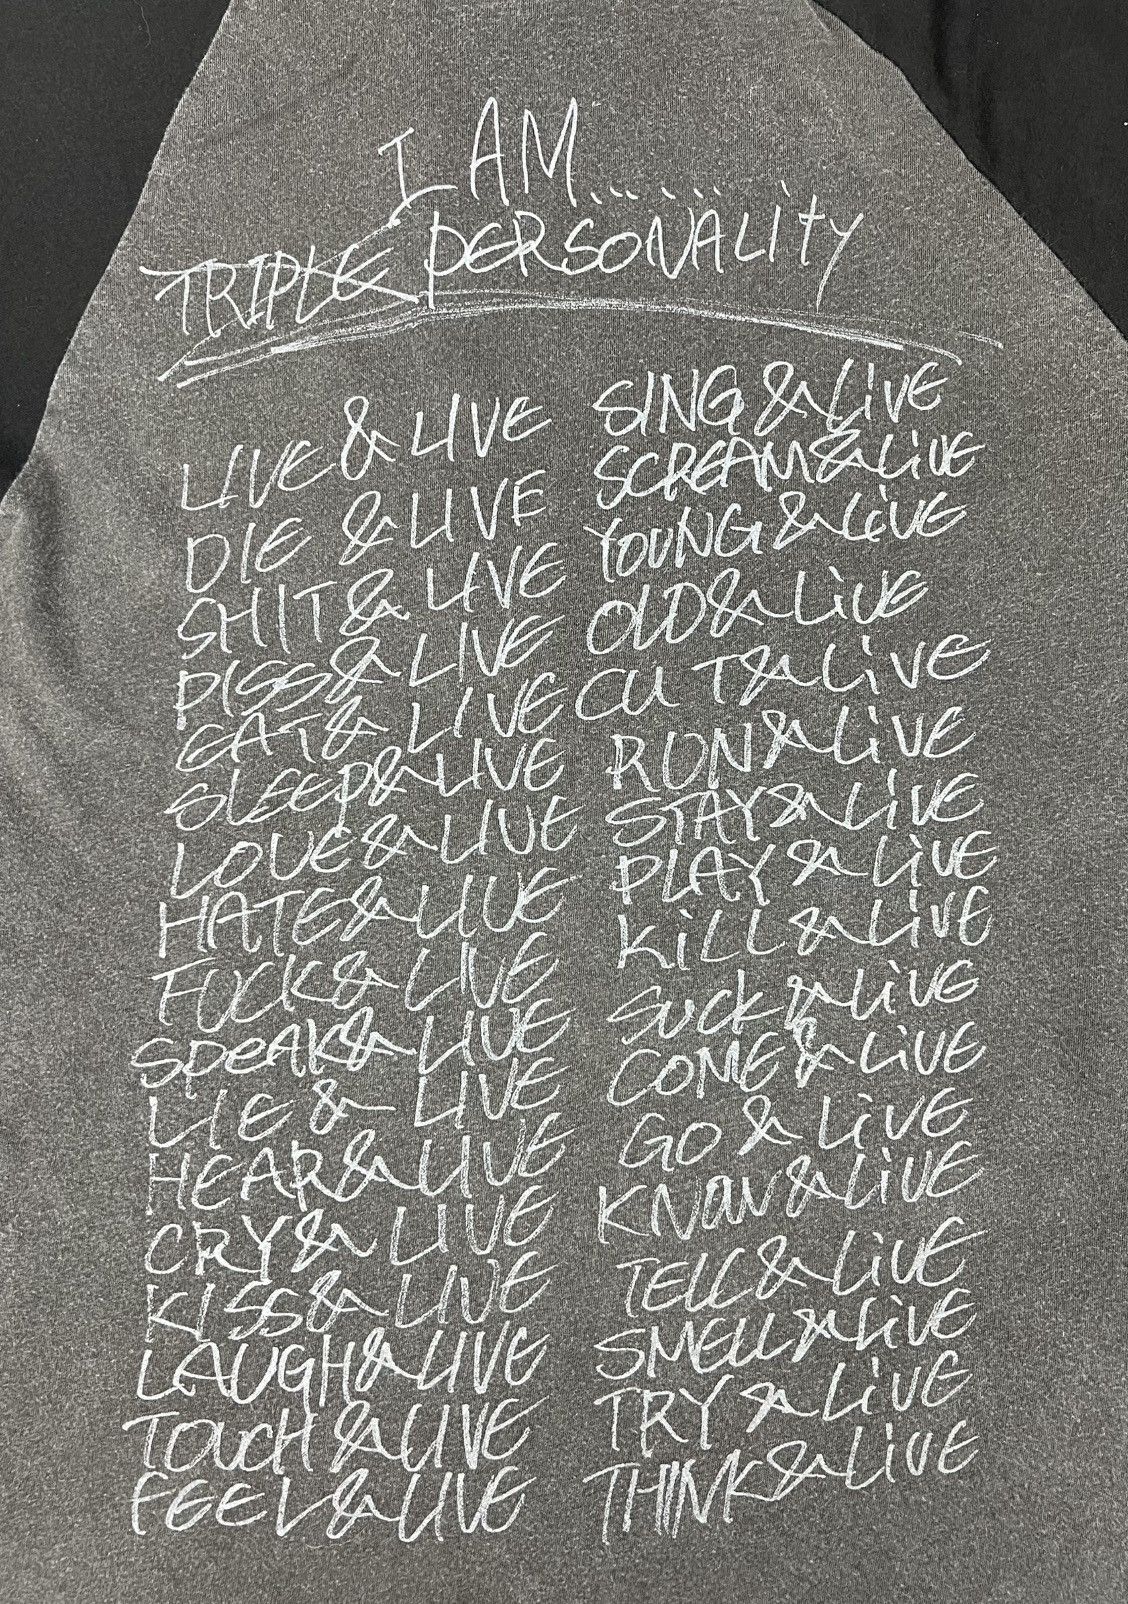 I AM.........
TRIPLE PERSONALITY
LIVE & LIVE
DIE & LIVE
SHIT & LIVE
PISS & LIVE
EAT & LIVE
SLEEP & LIVE
LOVE & LIVE
HATE & LIVE
FUCK & LIVE
SPEAK & LIVE
LIE & LIVE
HEAR & LIVE
CRY & LIVE
KISS & LIVE
LAUGH & LIVE
TOUCH & LIVE
FEEL & LIVE
SING & LiVE
SCREAM & LiVE
YOUNG & LiVE
OLD & LiVE
CUT & LiVE
RUN & LiVE
STAY & LiVE
PLAY & LiVE
KiLL & LiVE
SUCK & LiVE
COME & LiVE
GO & LiVE
KNOW & LiVE
TELL & LiVE
SMELL & LiVE
TRY & LiVE
THINK & LiVE